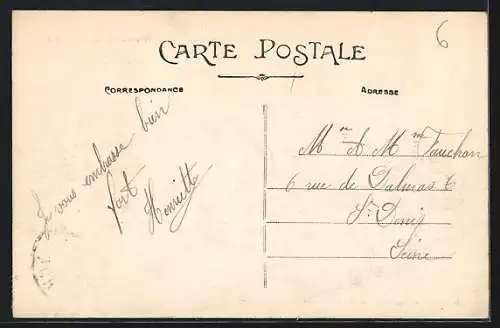 6
CARTE POSTALE
CORRESPONDANCE
ADRESSE
Je vous embrasse bien
fort
Henriette
M et M Fauchon
6 rue de
St Denis
Seine